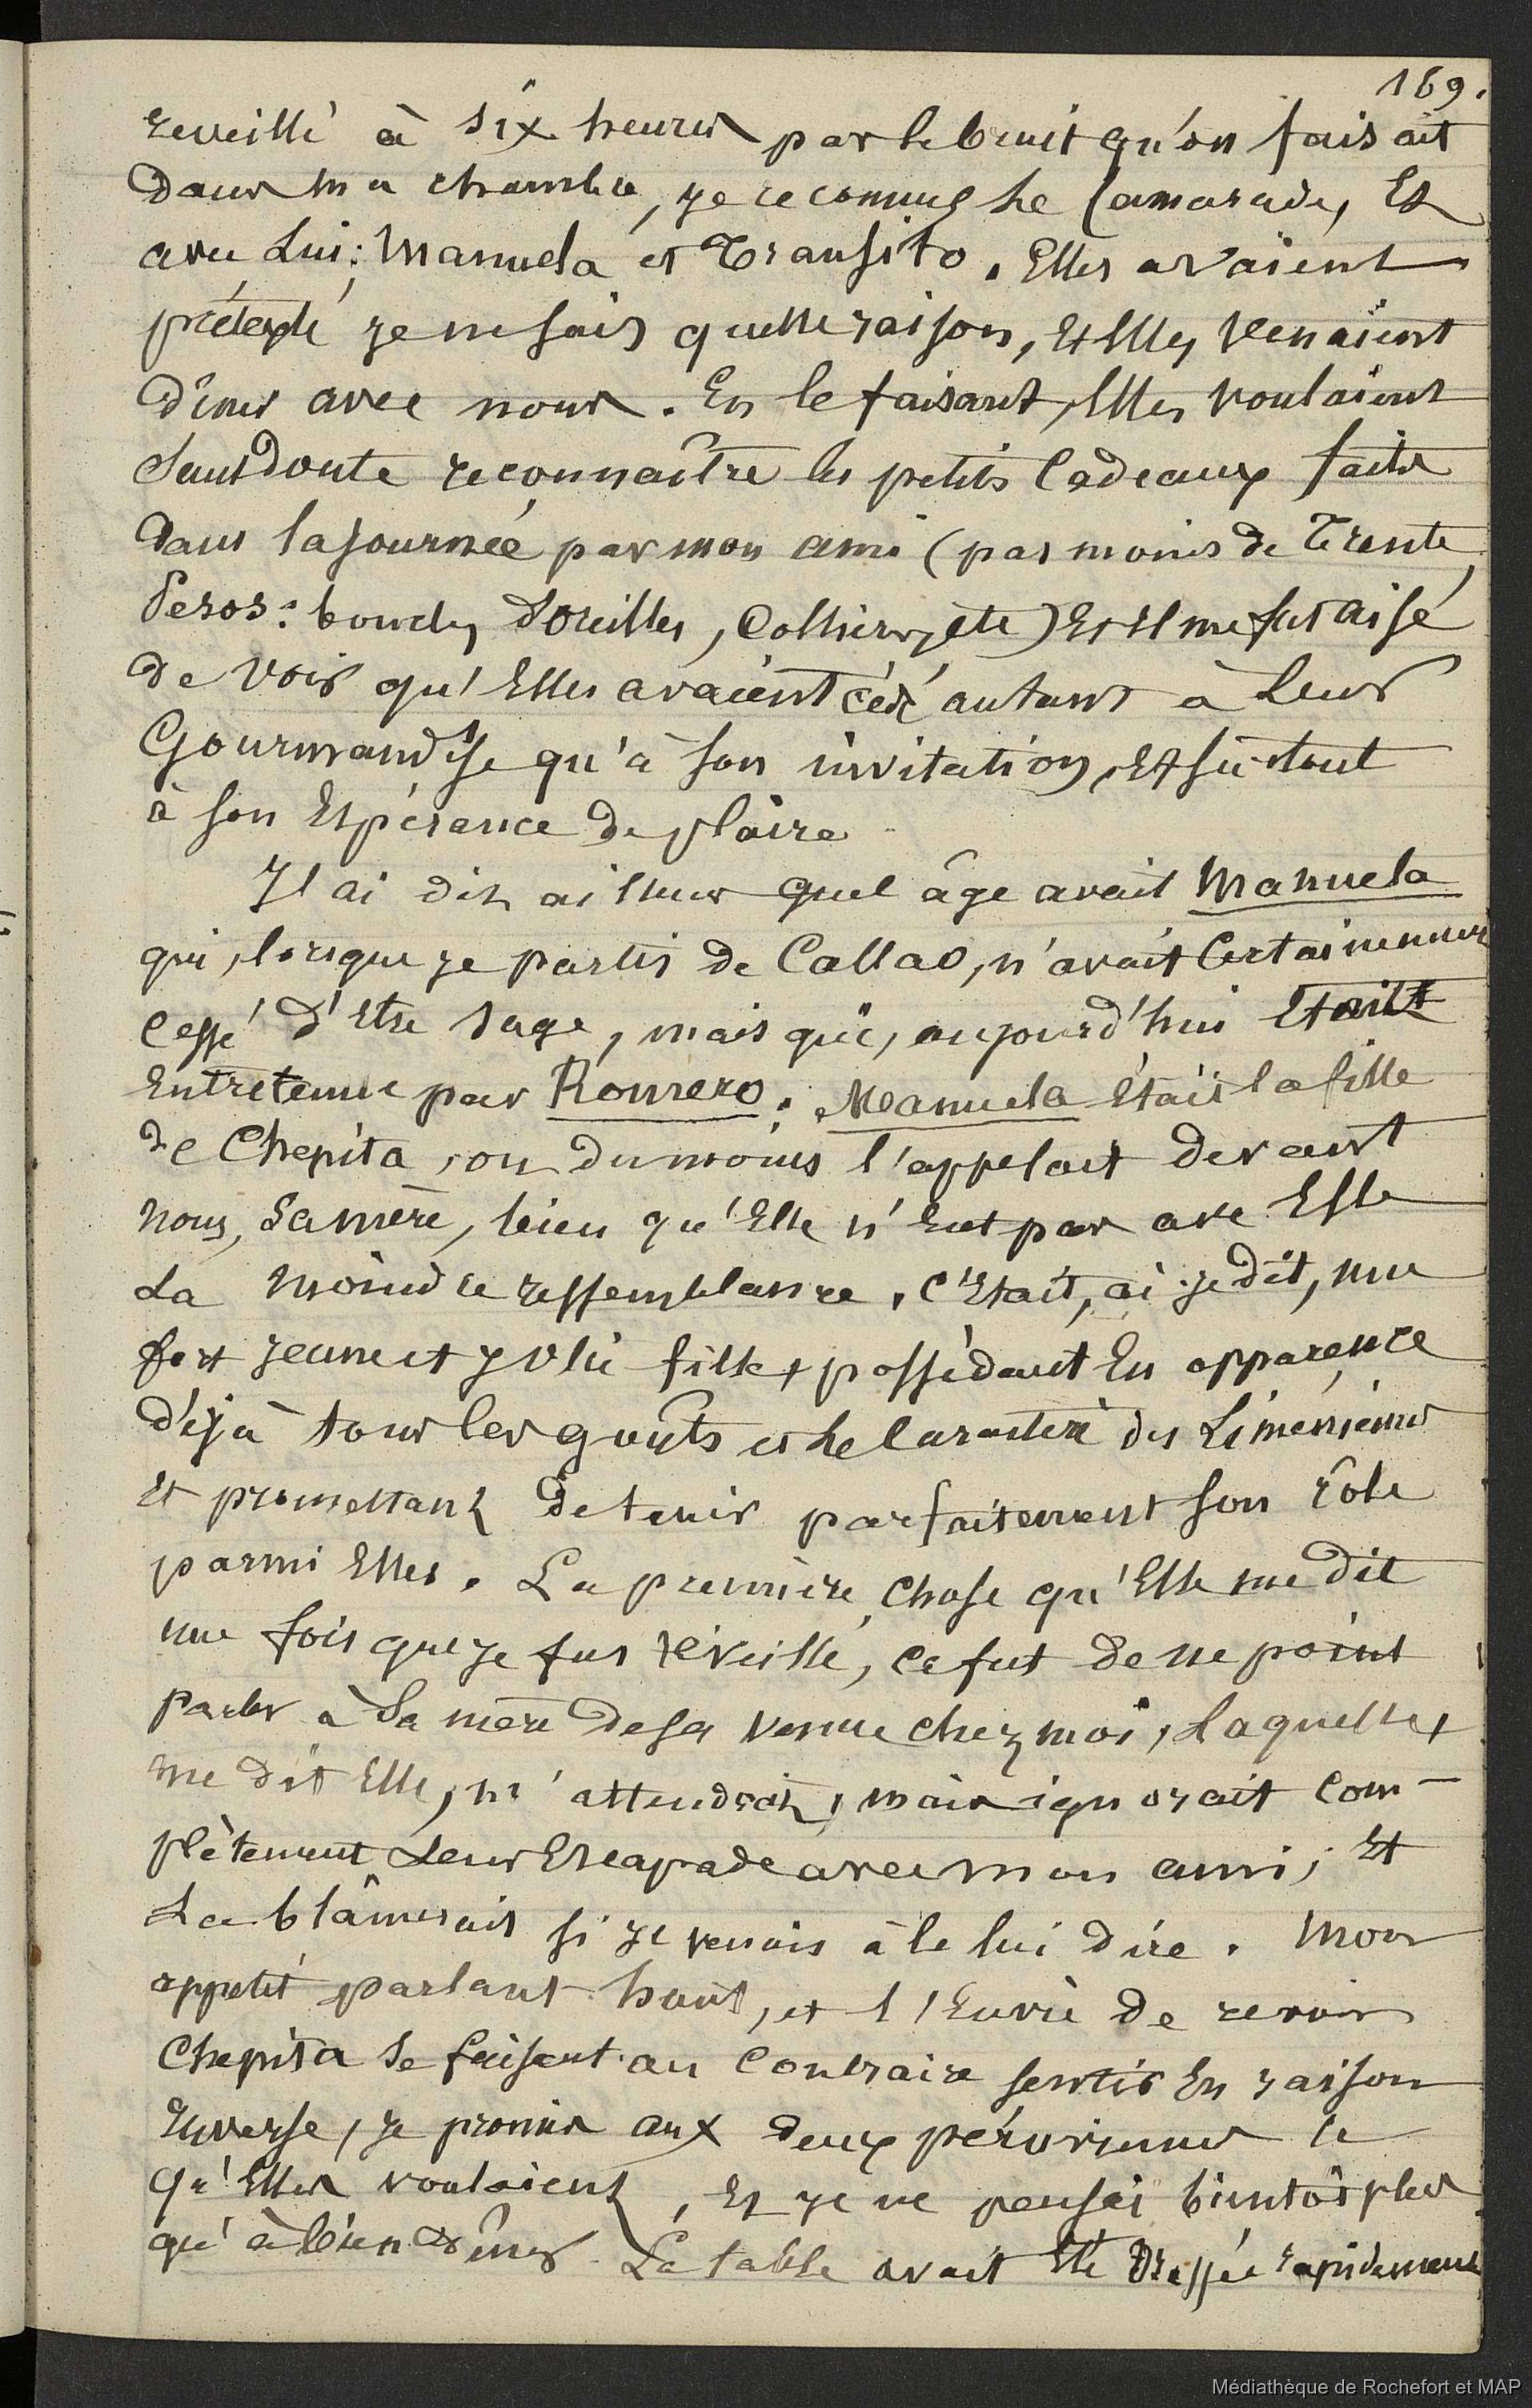 169.
reveillé à six heures par le bruit qu'on faisait
dans ma chambre, je reconnus le Camarade, Et
avec Lui: Manuela et Transito. Elles avaient
prétexté je ne sais quelle raison, Et Elles Venaient
dîner avec nous. En le faisant, Elles voulaient
Sans doute reconnaître les petits Cadeaux faits
dans la journée par mon ami (pas moins de Trente
Pesos: boucles d'oreilles, Colliers, etc) Et Il me fut aisé
de Voir qu'Elles avaient cédé autant à Leur
Gourmandise qu'à son invitation, Et surtout
à son Espérance de plaire
J'ai dit ailleurs quel âge avait Manuela
qui, lorsque je partis de Callao, n'avait Certainement
Cessé d'Etre sage, mais qui, aujourd'hui Etait
Entretenue par Romero. Manuela Etait la fille
de Chepita, ou du moins l'appelait devant
nous, Sa mère, bien qu'Elle n'Eut pas avec Elle
La moindre ressemblance. C'Etait, ai-je dit, une
fort jeune et jolie fille, possédant En apparence
déjà tous les goûts et le Caractère des Liméniennes
Et promettant de tenir parfaitement son rôle
parmi Elles. La première chose qu'Elle me dit
une fois que je fus réveillé, Ce fut de ne point
Parler à Sa mère de sa venue chez moi, Laquelle,
me dit Elle, m'attendait, mais ignorait Com-
plètement Leur Escapade avec mon ami, Et
La blâmerait si je venais à le lui dire. Mon
appétit parlant haut, et l'Envie de revoir
Chepita se faisant au Contraire sentir En raison
Inverse, je promis aux deux péruviennes ce
qu'Elles voulaient, Et je ne pensai bientôt plus
qu'à bien dîner. La table avait Eté Dressée rapidement
Médiathèque de Rochefort et MAP